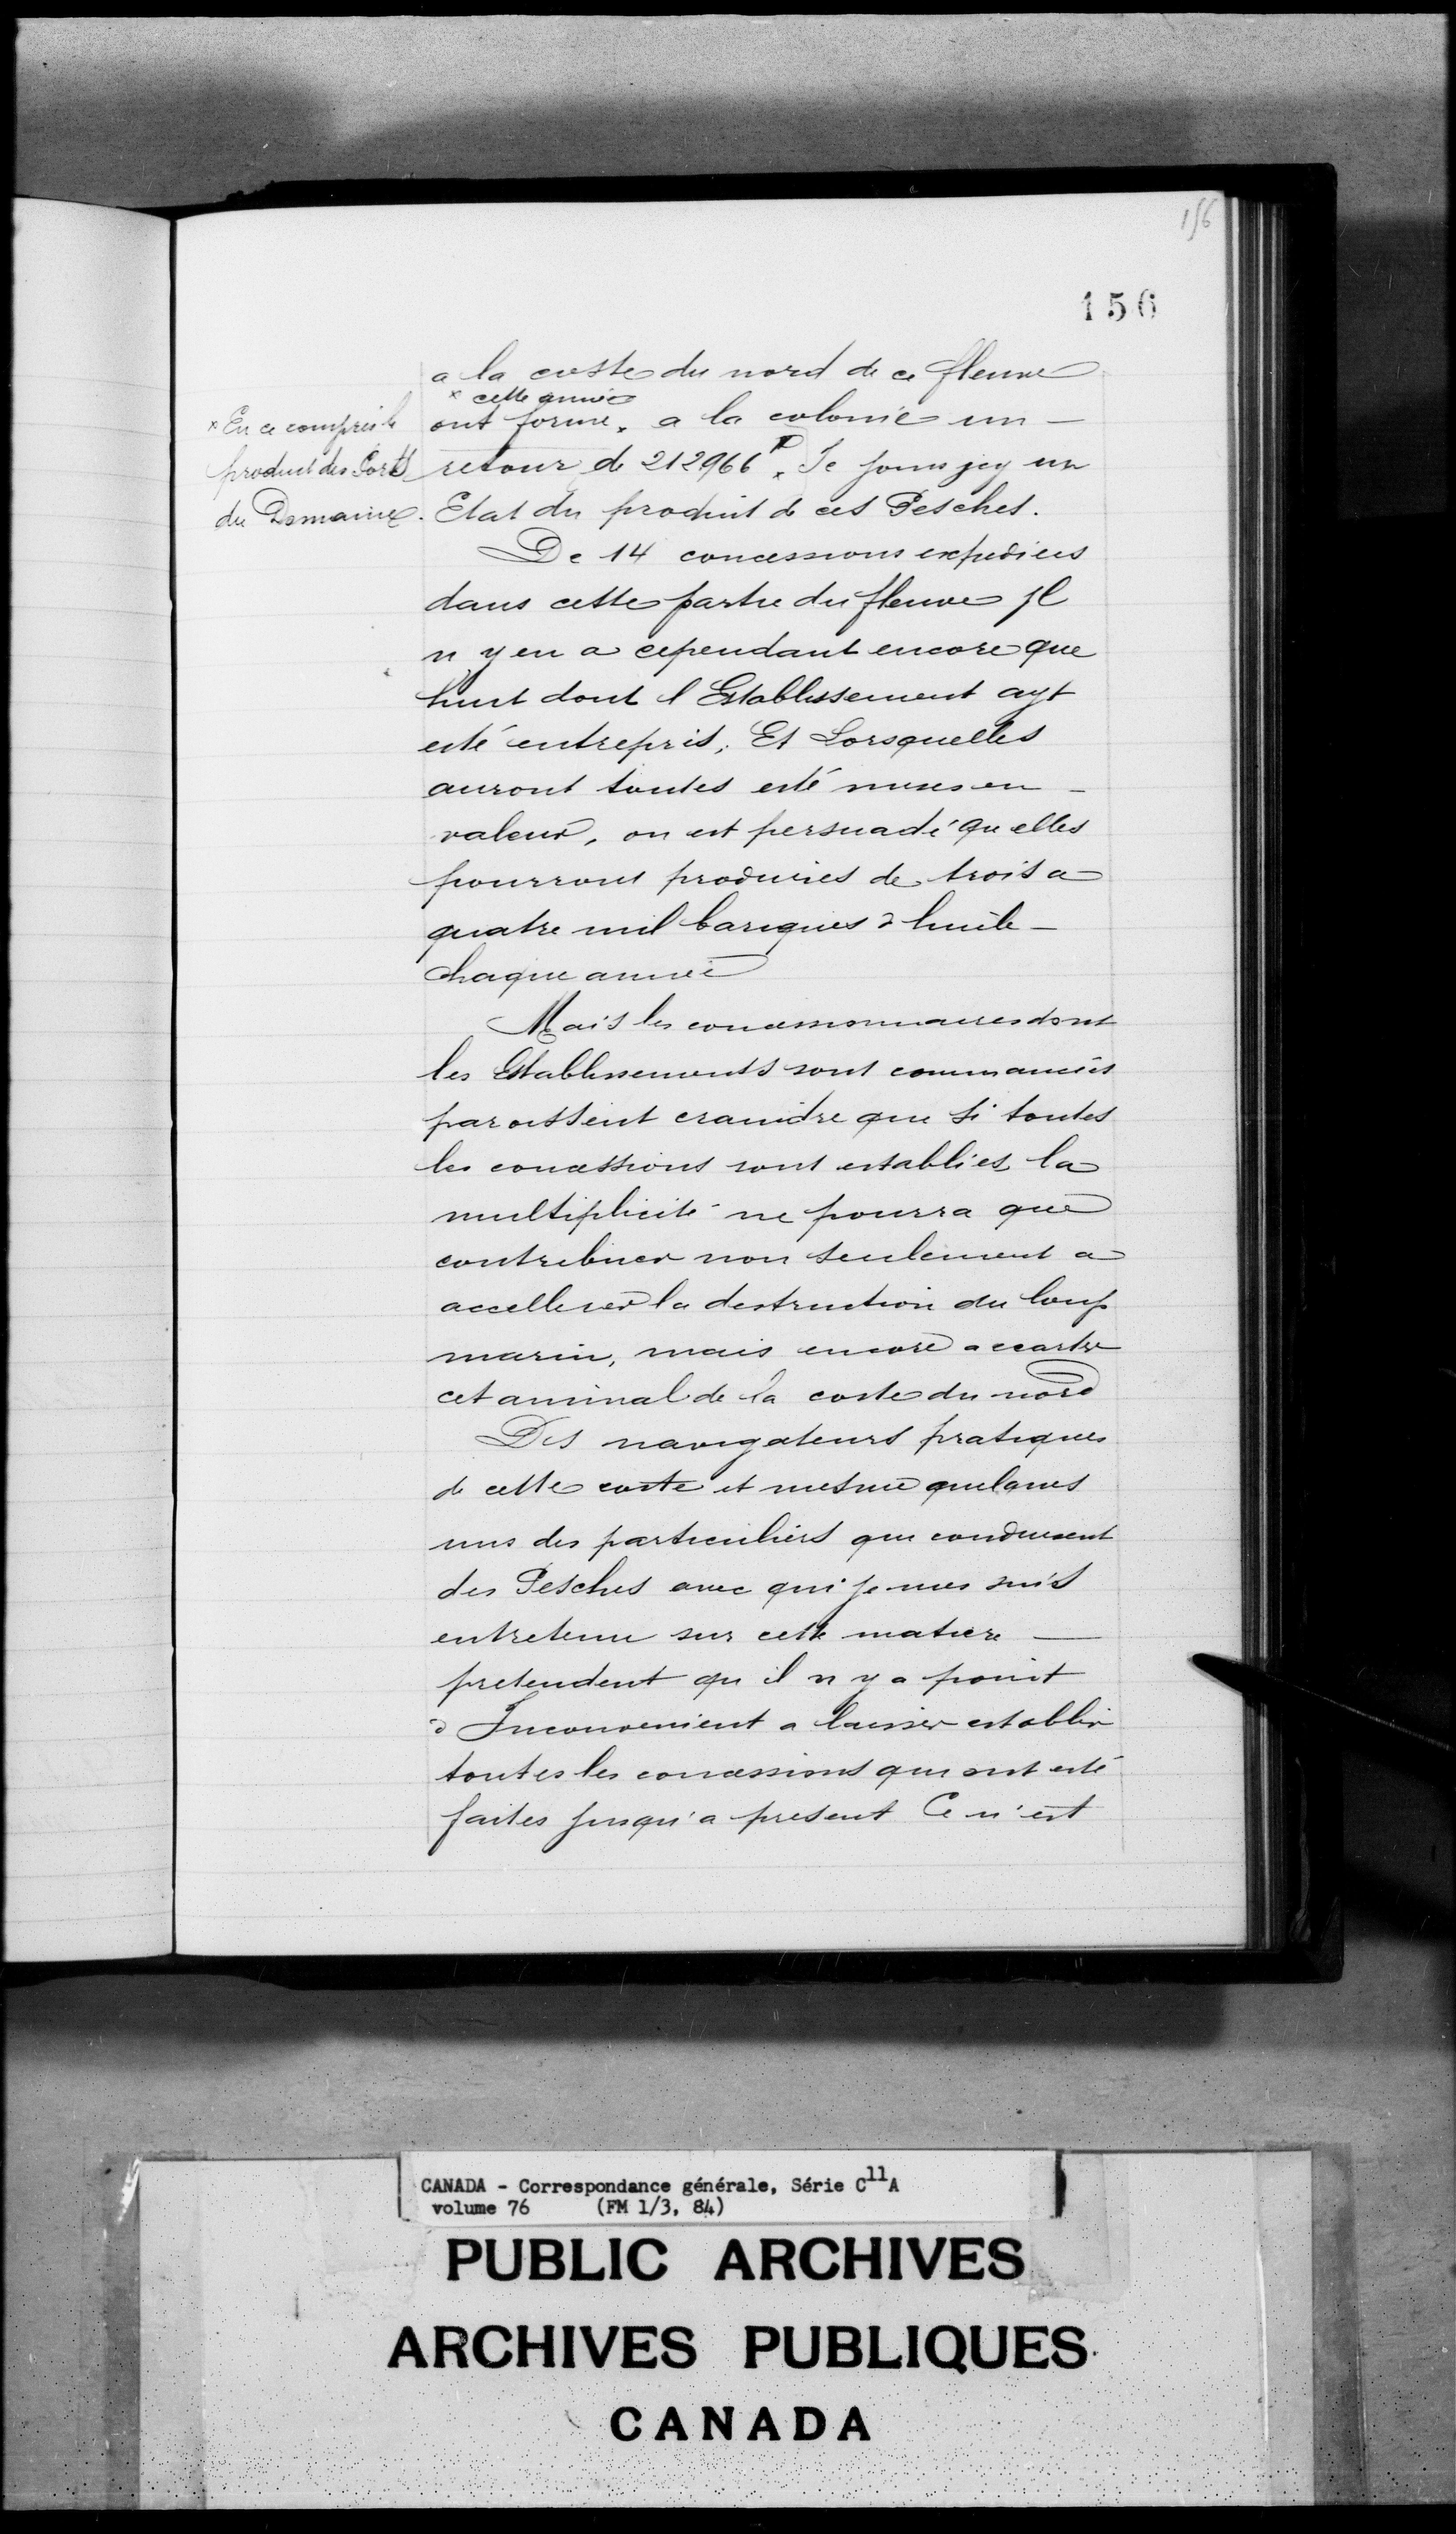 156
156
a la coste du nord de ce fleuve
x cette année
x En ce compris le
produit des Ports
du Domaine.
ont formé x a la colonie un —
retour de 212966 ₶. Je joins jcy un
Etat du produit de ces Pesches.
De 14 concessions expediées
dans cette partie du fleuve jl
n y en a cependant encore que
huit dont l Establissement ayt
esté entrepris, Et Lorsquelles
auront toutes esté mises en —
valeur, on est persuadé qu elles
pourront produires de trois a
quatre mil bariques d huile —
chaque année
Mais les concessionnaires dont
les Establissements sont commancées
paroissent craindre que si toutes
les concessions sont establies la
multiplicité ne pourra que
contribuer non seulement a
accellerer la destruction du loup
marin, mais encore a ecarter
cet animal de la coste du nord
Des navigateurs pratiques
de cette coste et mesme quelques
uns des particuliers qui conduisent
des Pesches avec qui je me suis
entretenu sur cette matiere —
pretendent qu il n y a point
d Inconvenient a laisser establir
toutes les concessions qui ont esté
faites jusqu'a present Ce n'est
CANADA - Correspondance générale, Série C11A
volume 76 (FM 1/3, 84)
PUBLIC ARCHIVES
ARCHIVES PUBLIQUES
CANADA